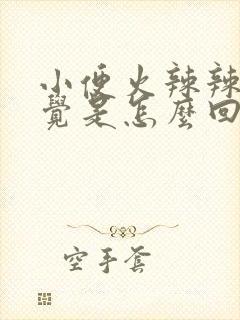 小便火辣辣
覺是怎麼回
空手套